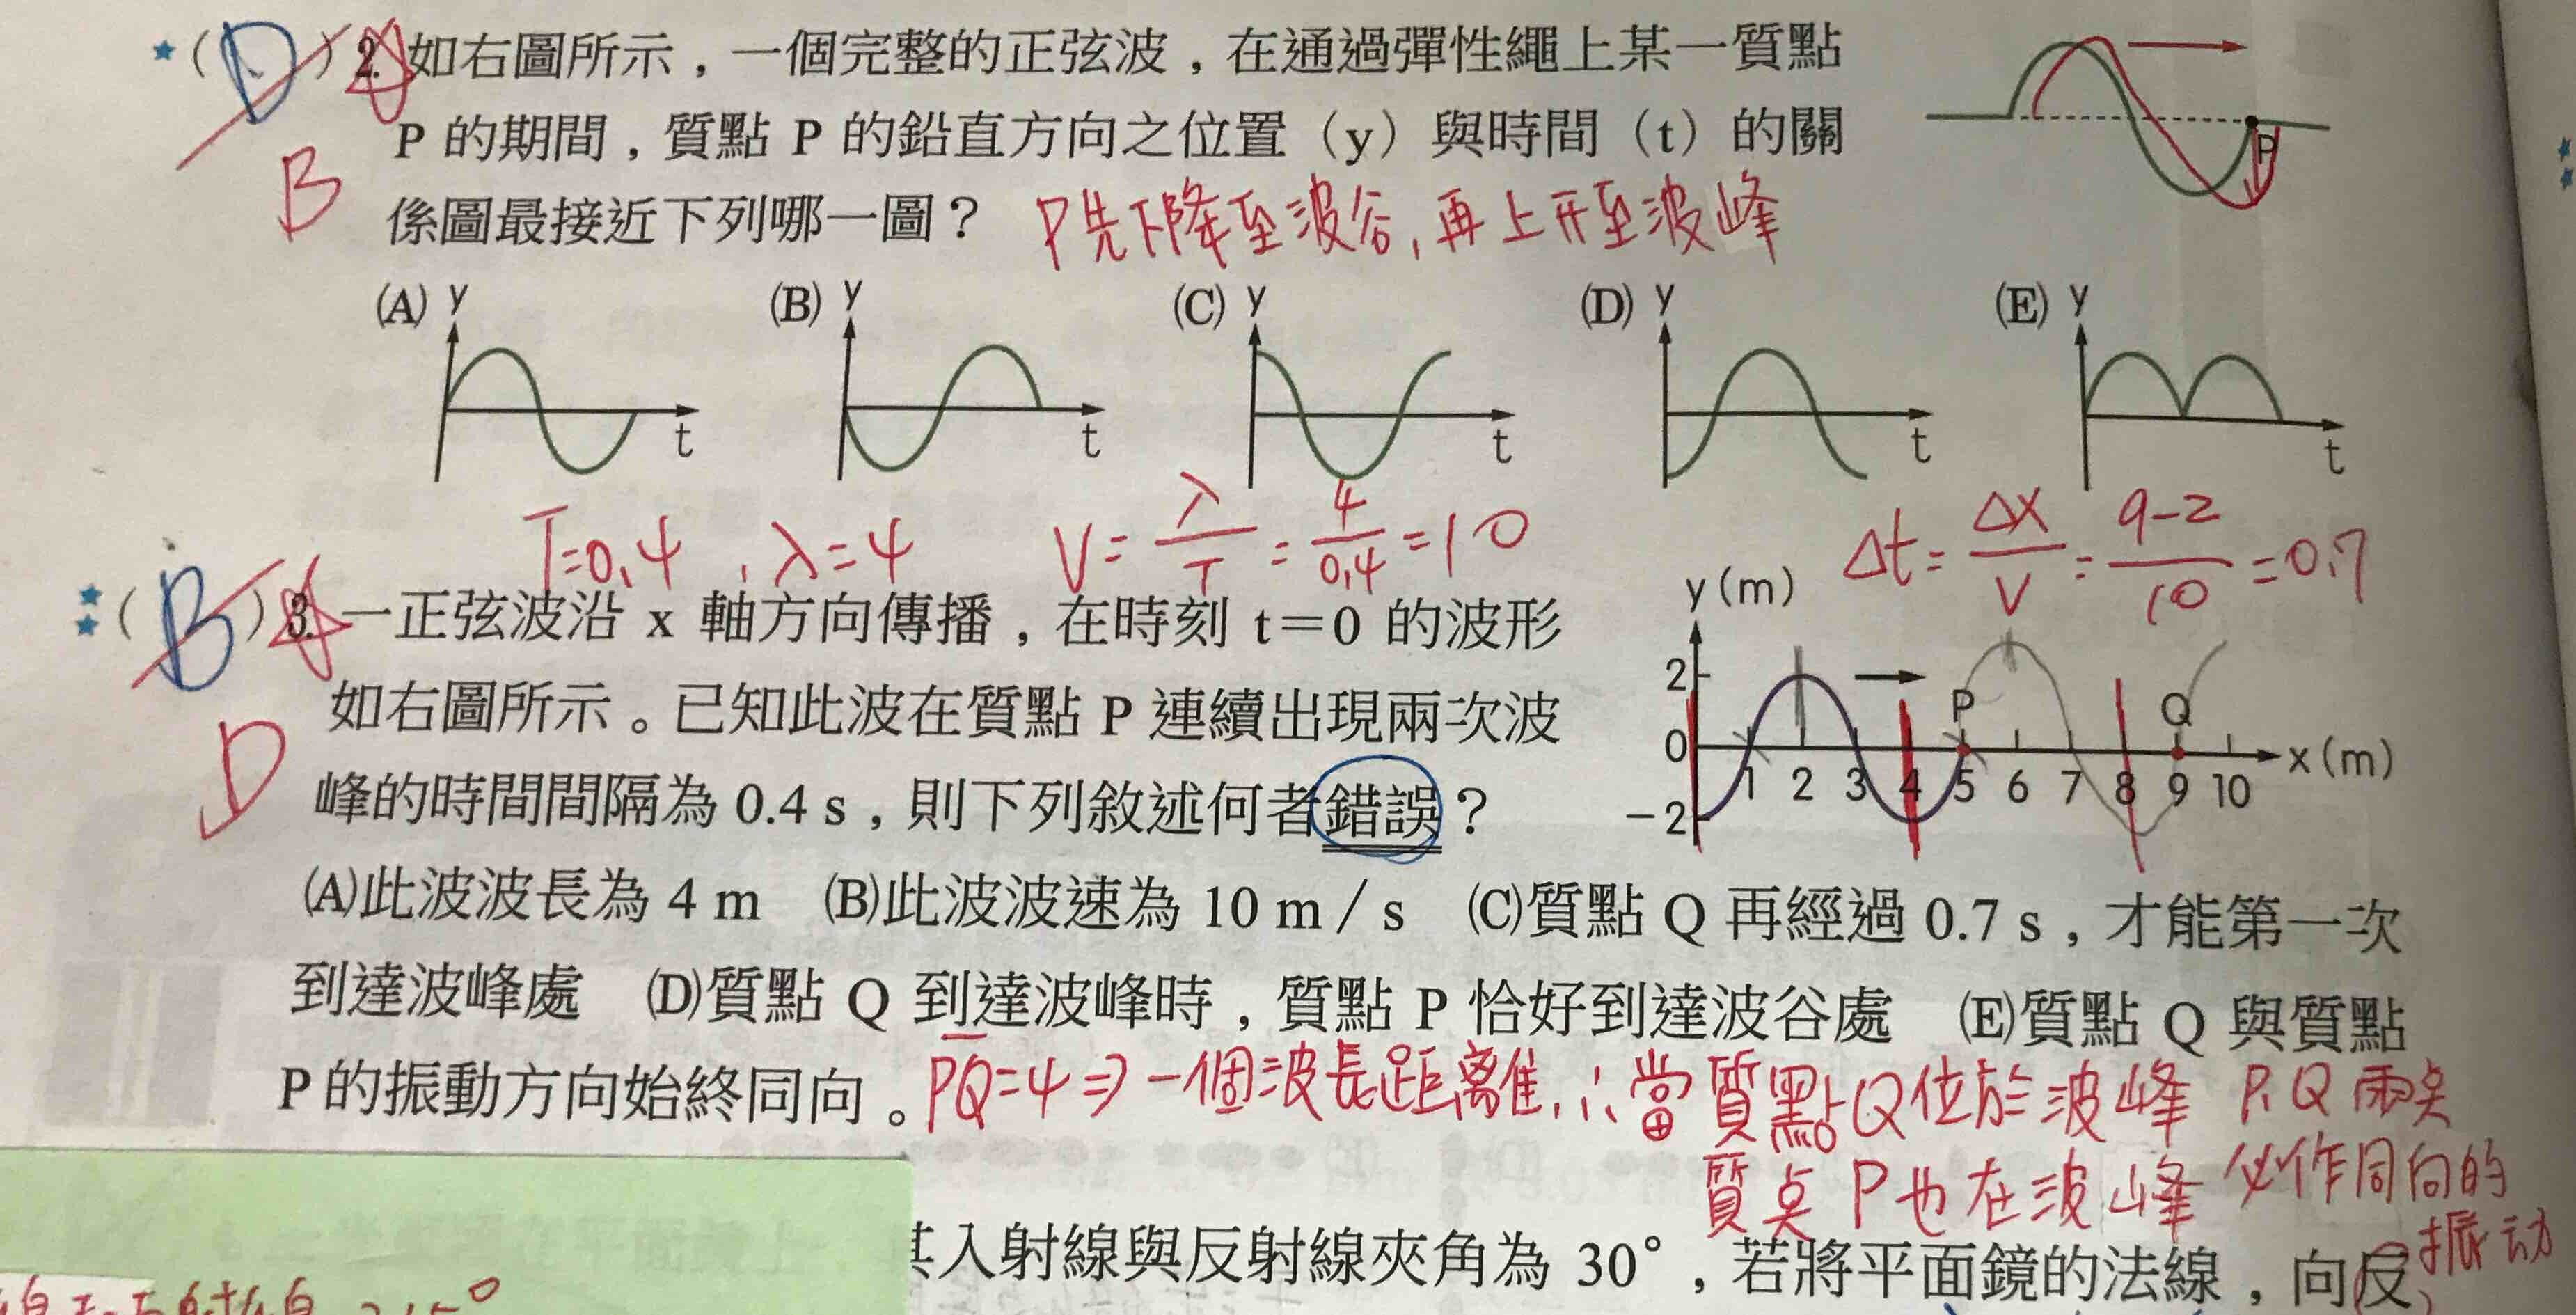 ★(D)2. 如右圖所示，一個完整的正弦波，在通過彈性繩上某一質點
P 的期間，質點 P 的鉛直方向之位置（y）與時間（t）的關
B
係圖最接近下列哪一圖？ P先下降至波谷，再上升至波峰
P
(A) y t (B) y t (C) y t (D) y t (E) y t
T=0.4，λ=4 V=λ/T=4/0.4=10 Δt=ΔX/V=9-2/10=0.7
★★(B)3. 一正弦波沿 x 軸方向傳播，在時刻 t＝0 的波形
如右圖所示。已知此波在質點 P 連續出現兩次波
D
峰的時間間隔為 0.4 s，則下列敘述何者錯誤？
y(m)
2
0
−2
P Q
1 2 3 4 5 6 7 8 9 10
x(m)
(A)此波波長為 4 m (B)此波波速為 10 m／s (C)質點 Q 再經過 0.7 s，才能第一次
到達波峰處 (D)質點 Q 到達波峰時，質點 P 恰好到達波谷處 (E)質點 Q 與質點
P 的振動方向始終同向。
PQ=4⇒一個波長距離，∴當質點Q位於波峰
質点P也在波峰
P,Q兩点
必作同向的
振动
其入射線與反射線夾角為 30°，若將平面鏡的法線，向反